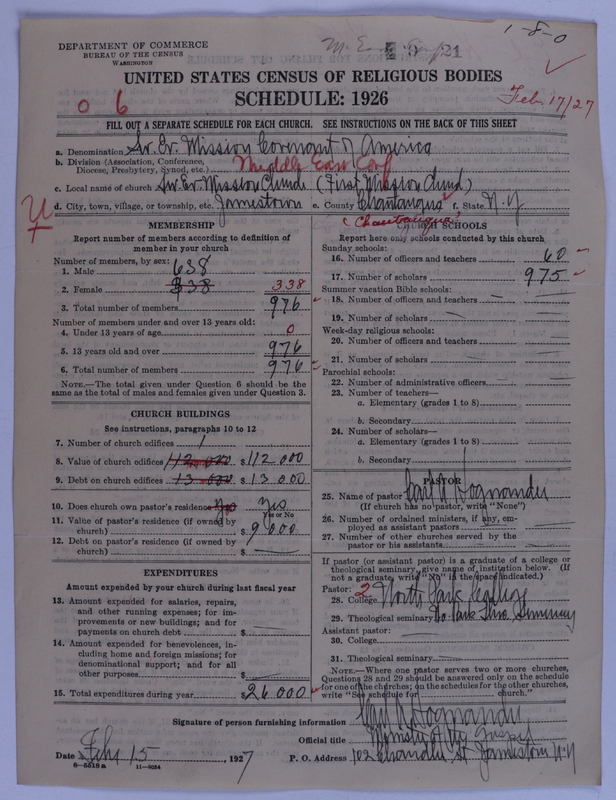 DEPARTMENT OF COMMERCE
BUREAU OF THE CENSUS
WASHINGTON
21
1-8-0
UNITED STATES CENSUS OF RELIGIOUS BODIES
SCHEDULE: 1926
0 6
Feb. 17/27
FILL OUT A SEPARATE SCHEDULE FOR EACH CHURCH. SEE INSTRUCTIONS ON THE BACK OF THIS SHEET
a. Denomination Sw. Ev. Mission Covenant of America
b. Division (Association, Conference, Diocese, Presbytery, Synod, etc.) Middle East Conf
c. Local name of church Sw. Ev. Mission Church (First Mission Church)
d. City, town, village, or township, etc. Jamestown e. County Chautauqua f. State N.Y
(Chautauqua)
MEMBERSHIP
Report number of members according to definition of member in your church
Number of members, by sex:
1. Male 638
2. Female 338 338
3. Total number of members 976
Number of members under and over 13 years old:
4. Under 13 years of age 0
5. 13 years old and over 976
6. Total number of members 976
NOTE.—The total given under Question 6 should be the same as the total of males and females given under Question 3.
CHURCH BUILDINGS
See instructions, paragraphs 10 to 12
7. Number of church edifices 1
8. Value of church edifices 112,000 $112 000
9. Debt on church edifices 13 000 $13 000
10. Does church own pastor's residence? Yes Yes
Yes or No
11. Value of pastor's residence (if owned by church) $9 000
12. Debt on pastor's residence (if owned by church) $ —
EXPENDITURES
Amount expended by your church during last fiscal year
13. Amount expended for salaries, repairs, and other running expenses; for improvements or new buildings; and for payments on church debt $
14. Amount expended for benevolences, including home and foreign missions; for denominational support; and for all other purposes $
15. Total expenditures during year $26 000
CHURCH SCHOOLS
Report here only schools conducted by this church
Sunday schools:
16. Number of officers and teachers 60
17. Number of scholars 975
Summer vacation Bible schools:
18. Number of officers and teachers —
19. Number of scholars —
Week-day religious schools:
20. Number of officers and teachers —
21. Number of scholars —
Parochial schools:
22. Number of administrative officers
23. Number of teachers—
a. Elementary (grades 1 to 8)
b. Secondary
24. Number of scholars—
a. Elementary (grades 1 to 8)
b. Secondary
PASTOR
25. Name of pastor Carl A
(If church has no pastor, write "None")
26. Number of ordained ministers, if any, employed as assistant pastors
27. Number of other churches served by the pastor or his assistants
If pastor (or assistant pastor) is a graduate of a college or theological seminary, give name of institution below. (If not a graduate, write "No" in the space indicated.)
Pastor: 2
28. College North Park College
29. Theological seminary No Park Theo. Seminary
Assistant pastor:
30. College
31. Theological seminary
NOTE.—Where one pastor serves two or more churches, Questions 28 and 29 should be answered only on the schedule for one of the churches; on the schedules for the other churches, write "See schedule for church."
Signature of person furnishing information Carl A
Official title Minister of the Gospel
Date Feb 15, 1927 P. O. Address 102 Chandler St Jamestown N.Y
8-5519a 11-9054